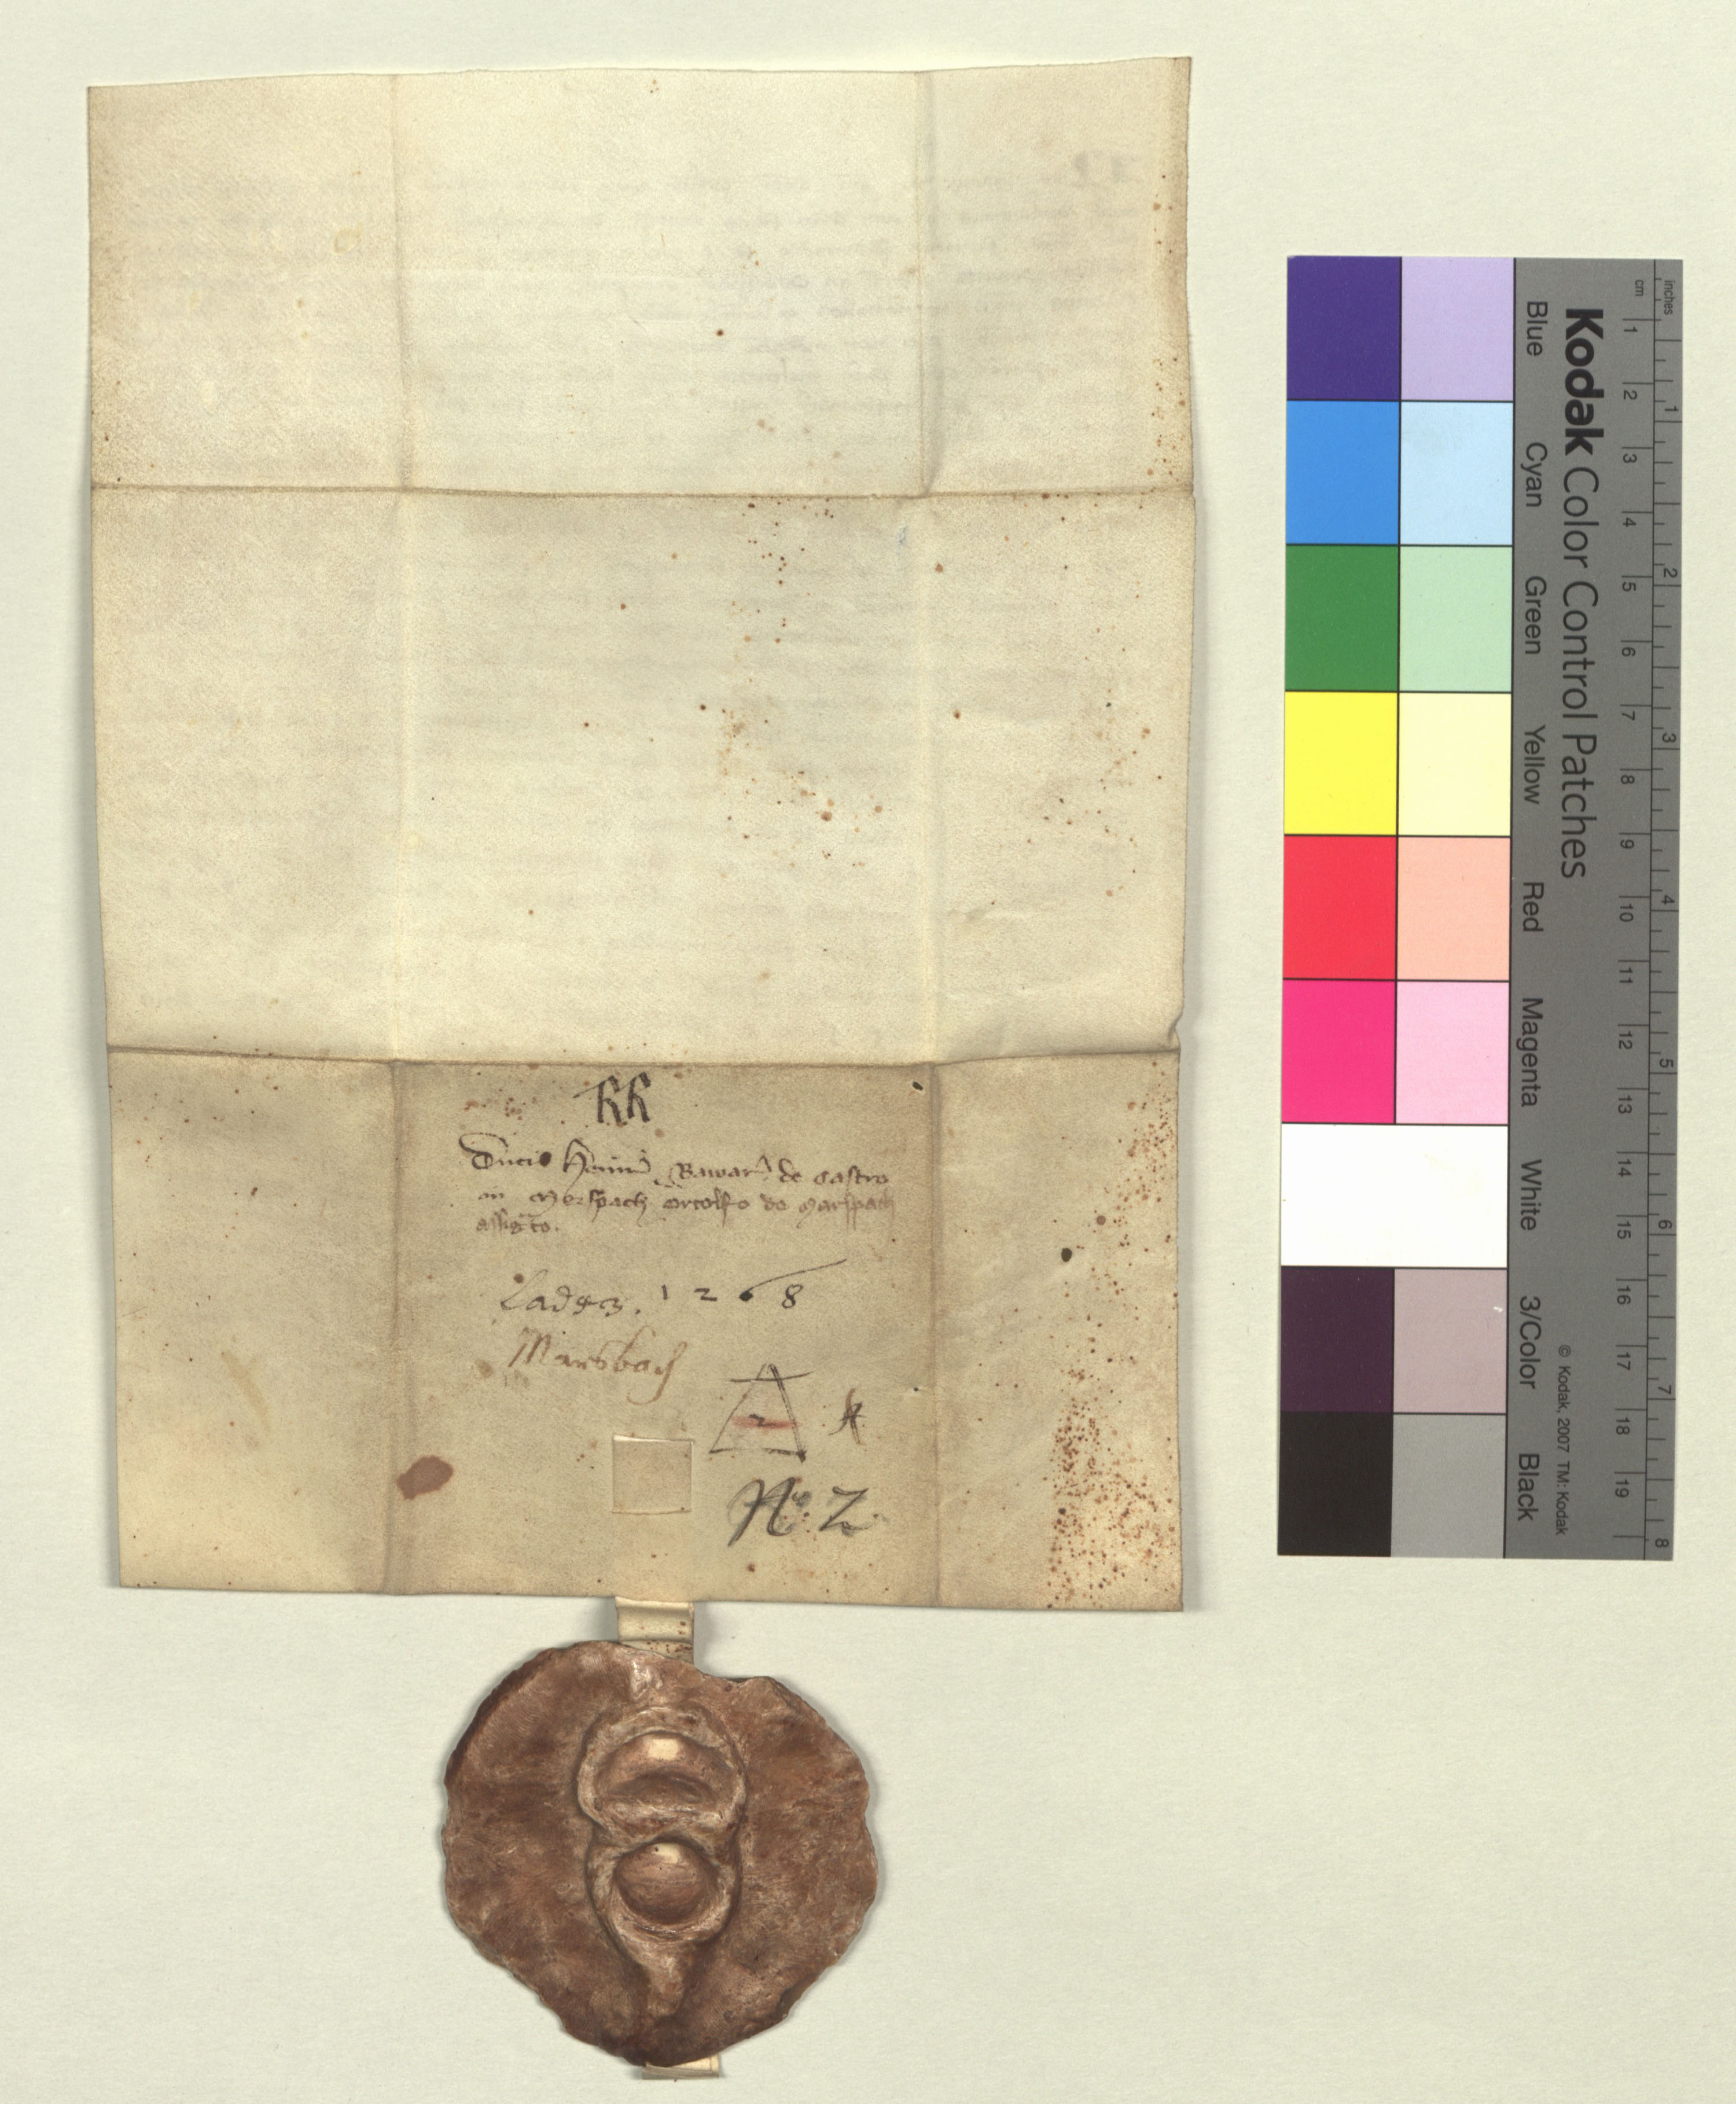 hh
Ducis Heinr Bawar de castro
in Morspach Ortolfo de Marspach
assig̅to.
Lad 43. 1268
Marsbach
2 A
No 2
Kodak Color Control Patches
Blue Cyan Green Yellow Red Magenta White 3/Color Black
© Kodak, 2007 TM: Kodak
cm 1 2 3 4 5 6 7 8 9 10 11 12 13 14 15 16 17 18 19
inches 1 2 3 4 5 6 7 8